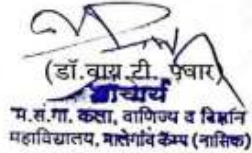 (डॉ.वाय.टी. पवार)
प्राचार्य
म.स.गा. कला, वाणिज्य व विज्ञान
महाविद्यालय, मालेगांव कॅम्प (नासिक)